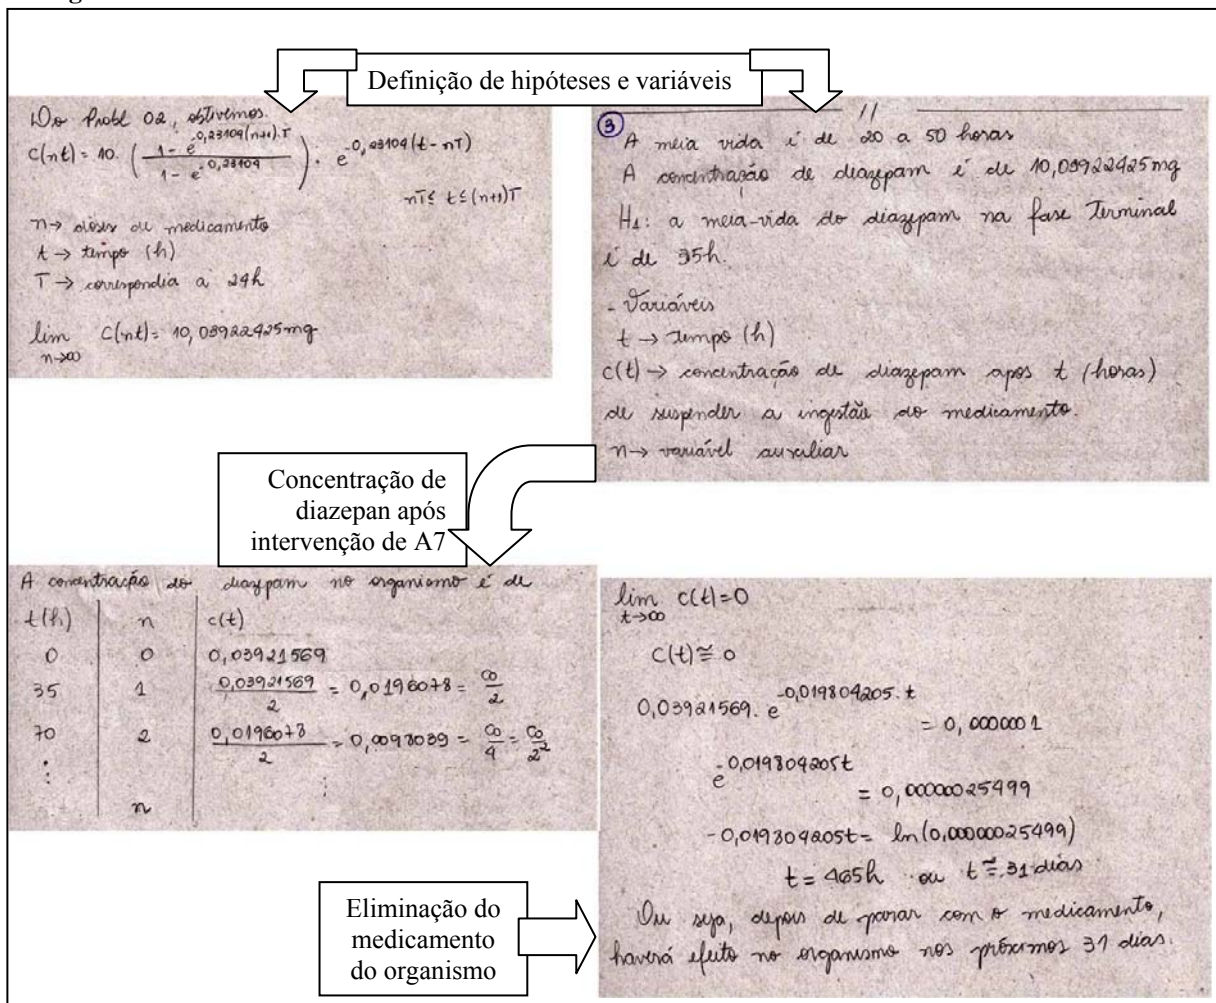 Definição de hipóteses e variáveis
Do Probl 02, obtivemos.
C(nt) = 10. ( 1 - e^-0,23104(n+1).T / 1 - e^-0,23104 ) . e^-0,23104(t - nT)
nT ≤ t ≤ (n+1)T
n → doses de medicamento
t → tempo (h)
T → correspondia a 24h
lim n→∞ C(nt) = 10,03922425mg
③ //
A meia vida é de 20 a 50 horas
A concentração de diazepam é de 10,03922425mg
H1: a meia-vida do diazepam na fase Terminal
é de 35h.
- Variáveis
t → tempo (h)
c(t) → concentração de diazepam apos t (horas)
de suspender a ingestão do medicamento.
n → variável auxiliar
Concentração de
diazepan após
intervenção de A7
A concentração do diazepam no organismo é de
t(h) | n | c(t)
0 | 0 | 0,03921569
35 | 1 | 0,03921569/2 = 0,0196078 = C0/2
70 | 2 | 0,0196078/2 = 0,0098039 = C0/4 = C0/2²
⋮ ⋮
n
lim t→∞ c(t) = 0
C(t) ≅ 0
0,03921569 . e^-0,019804205.t = 0,0000001
e^-0,019804205t = 0,00000025499
-0,019804205t = ln(0,00000025499)
t = 465h ou t ≅ 31 dias
Ou seja, depois de parar com o medicamento,
haverá efeito no organismo nos próximos 31 dias.
Eliminação do
medicamento
do organismo